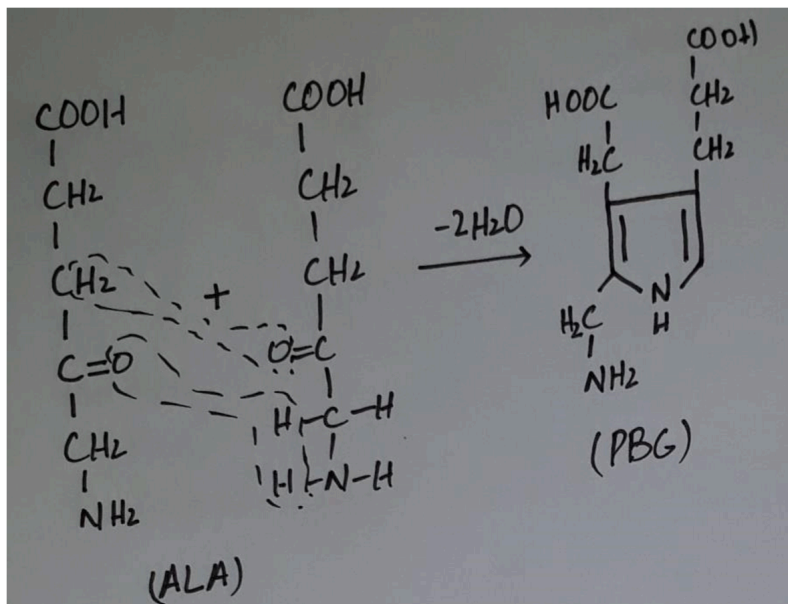 COOH
CH2
CH2
C=O
CH2
NH2
+
COOH
CH2
CH2
O=C
H-C-H
H-N-H
(ALA)
-2H2O
COOH
CH2
CH2
HOOC
H2C
N
H
H2C
NH2
(PBG)